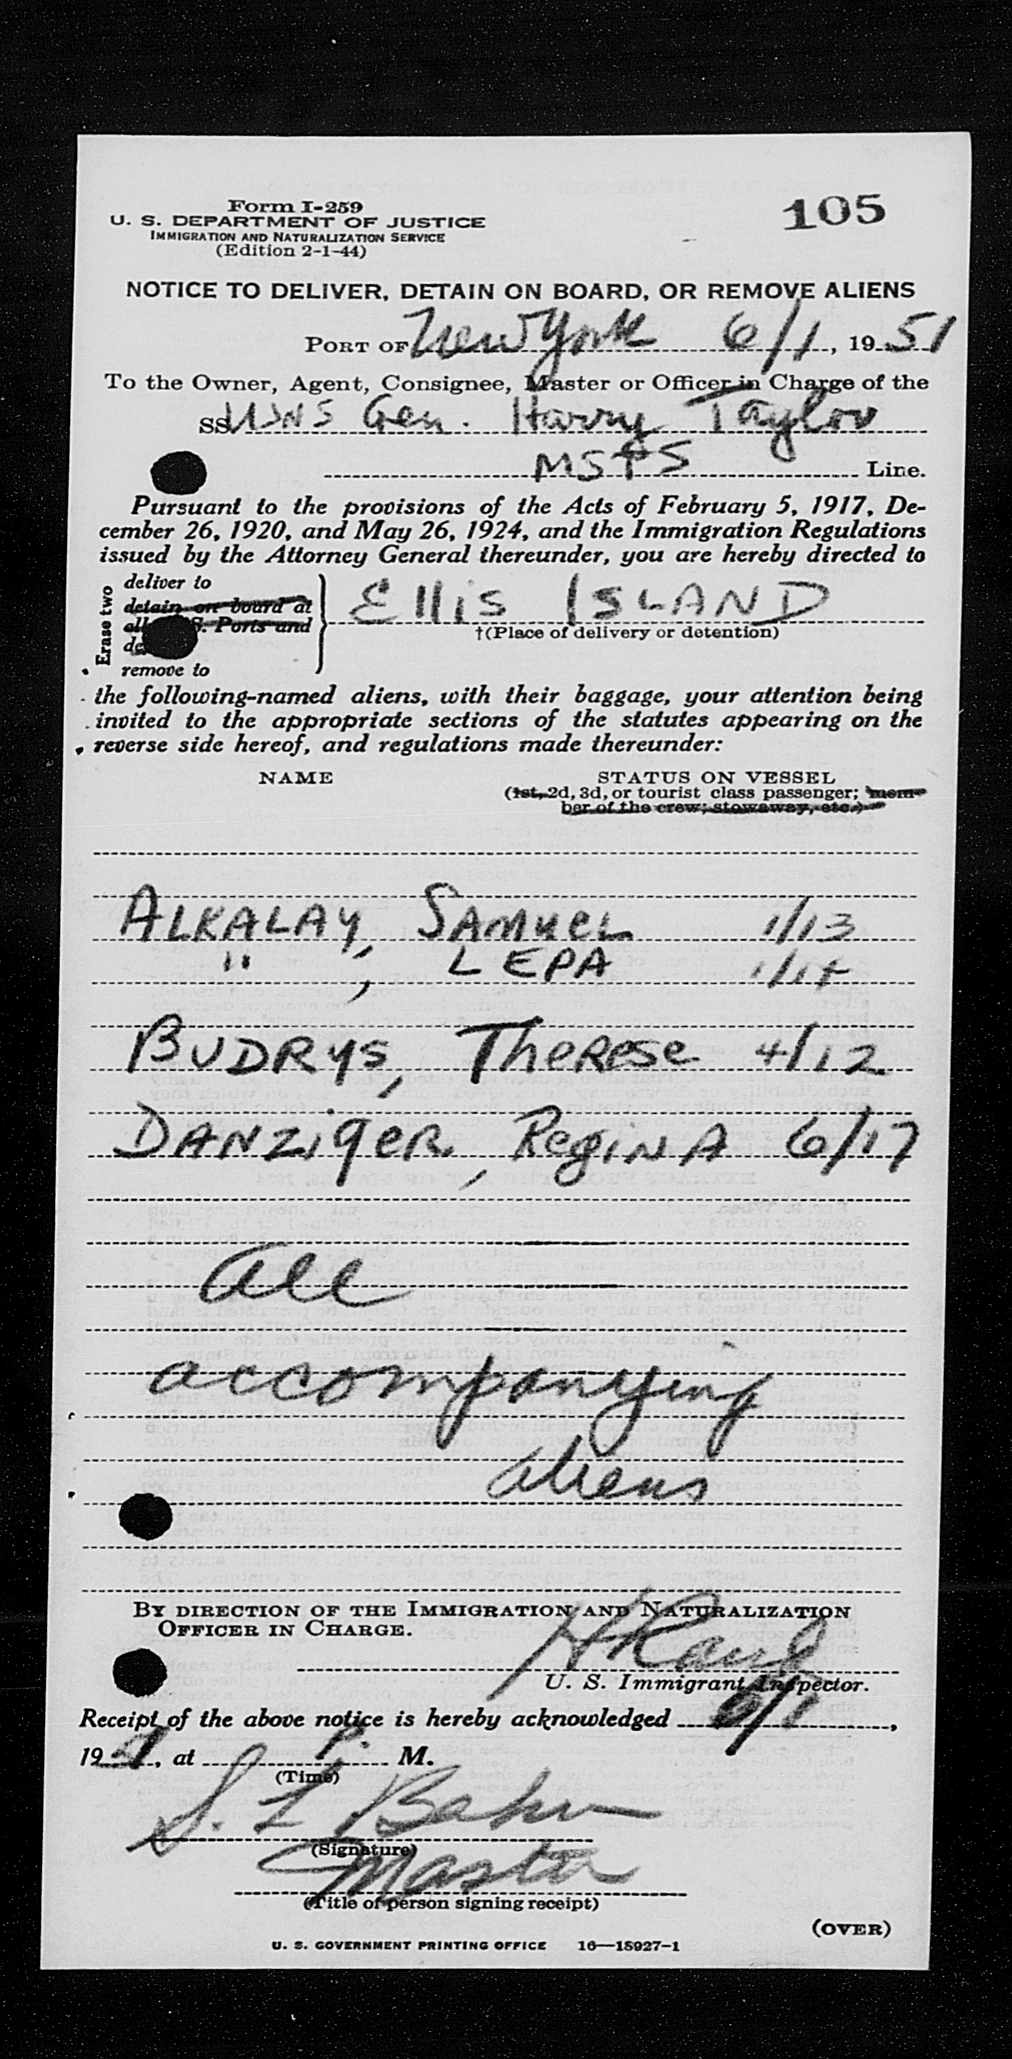 Form I-259
U. S. DEPARTMENT OF JUSTICE
IMMIGRATION AND NATURALIZATION SERVICE
(Edition 2-1-44)
105
NOTICE TO DELIVER, DETAIN ON BOARD, OR REMOVE ALIENS
PORT OF New York 6/1, 1951
To the Owner, Agent, Consignee, Master or Officer in Charge of the
SS USNS Gen. Harry Taylor
MSTS Line.
Pursuant to the provisions of the Acts of February 5, 1917, De-
cember 26, 1920, and May 26, 1924, and the Immigration Regulations
issued by the Attorney General thereunder, you are hereby directed to
Erase two
deliver to
detain on board at
all S. Ports and
remove to
Ellis ISLAND
†(Place of delivery or detention)
the following-named aliens, with their baggage, your attention being
invited to the appropriate sections of the statutes appearing on the
reverse side hereof, and regulations made thereunder:
NAME STATUS ON VESSEL
(1st, 2d, 3d, or tourist class passenger; mem-
ber of the crew; stowaway, etc.)
ALKALAY, SAMUEL 1/13
", LEPA 1/14
BUDRYS, Therese 4/12
DANZIGER, REGINA 6/17
all
accompanying
aliens
BY DIRECTION OF THE IMMIGRATION AND NATURALIZATION
OFFICER IN CHARGE.
U. S. Immigrant Inspector.
Receipt of the above notice is hereby acknowledged 6/1,
19, at P. M.
(Time)
S. L.
(Signature)
Master
(Title of person signing receipt)
(OVER)
U. S. GOVERNMENT PRINTING OFFICE 16—18927-1